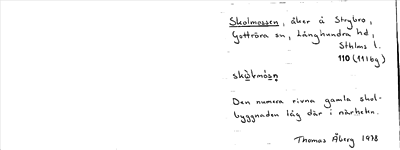 Skolmossen, åker å Strybro,
Gottröra sn, Långhundra hd,
Sthlms l.
110 (11I6g)
skὼlmósņ
Den numera rivna gamla skol-
byggnaden låg där i närheten.
Thomas Åberg 1978